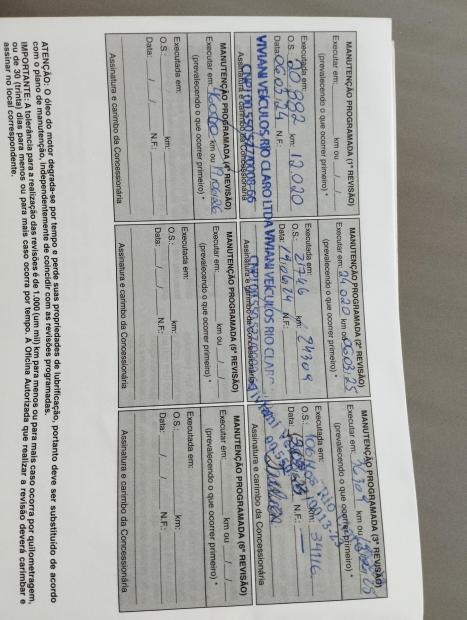 MANUTENÇÃO PROGRAMADA (1ª REVISÃO)
Executar em: km ou / /
(prevalecendo o que ocorrer primeiro) *
Executada em:
O.S.: 20.882 km: 12.020
Data: 06.03.24 N.F.:
VIVIANI VEÍCULOS RIO CLARO LTDA
Assinatura e carimbo da Concessionária
MANUTENÇÃO PROGRAMADA (2ª REVISÃO)
Executar em: 24.020 km ou 06.03.25
(prevalecendo o que ocorrer primeiro) *
Executada em:
O.S.: 21746 km: 24309
Data: 19.06.24 N.F.:
VIVIANI VEÍCULOS RIO CLARO
Assinatura e carimbo da Concessionária
MANUTENÇÃO PROGRAMADA (3ª REVISÃO)
Executar em: km ou
(prevalecendo o que ocorrer primeiro) *
Executada em:
O.S.: km: 34116
Data: N.F.:
Assinatura e carimbo da Concessionária
MANUTENÇÃO PROGRAMADA (4ª REVISÃO)
Executar em: km ou
(prevalecendo o que ocorrer primeiro) *
Executada em:
O.S.: km:
Data: / / N.F.:
Assinatura e carimbo da Concessionária
MANUTENÇÃO PROGRAMADA (5ª REVISÃO)
Executar em: km ou / /
(prevalecendo o que ocorrer primeiro) *
Executada em:
O.S.: km:
Data: / / N.F.:
Assinatura e carimbo da Concessionária
MANUTENÇÃO PROGRAMADA (6ª REVISÃO)
Executar em: km ou / /
(prevalecendo o que ocorrer primeiro) *
Executada em:
O.S.: km:
Data: / / N.F.:
Assinatura e carimbo da Concessionária
ATENÇÃO: O óleo do motor degrada-se por tempo e perde suas propriedades de lubrificação, portanto deve ser substituído de acordo
com o plano de manutenção, independentemente de coincidir com as revisões programadas.
IMPORTANTE: A tolerância para a realização das revisões é de 1.000 (um mil) km para menos ou para mais caso ocorra por quilometragem,
ou de 30 (trinta) dias para menos ou para mais caso ocorra por tempo. A Oficina Autorizada que realizar a revisão deverá carimbar e
assinar no local correspondente.